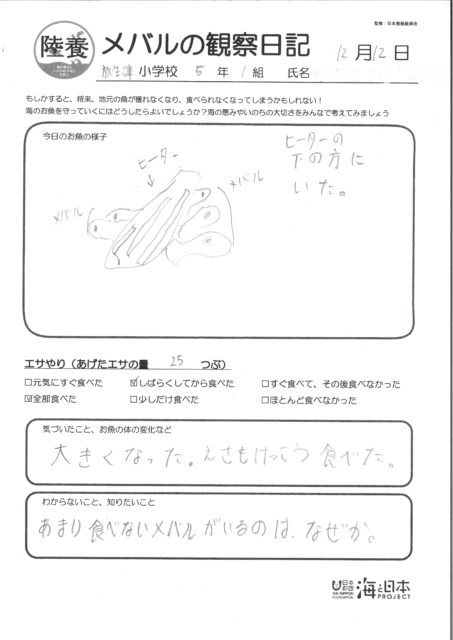 監修：日本養殖新聞
陸養
メバルの観察日記
12月12日
小学校 5年 1組 氏名
もしかすると、将来、地元の魚が獲れなくなり、食べられなくなってしまうかもしれない！
海のお魚を守っていくにはどうしたらよいでしょうか？海の恵みやいのちの大切さをみんなで考えてみましょう
今日のお魚の様子
ヒーター
メバル
メバル
ヒーターの
下の方に
いた。
エサやり（あげたエサの量 25 つぶ）
□元気にすぐ食べた ☑しばらくしてから食べた □すぐ食べて、その後食べなかった
☑全部食べた □少しだけ食べた □ほとんど食べなかった
気づいたこと、お魚の体の変化など
大きくなった。えさもけっこう食べた。
わからないこと、知りたいこと
あまり食べないメバルがいるのは、なぜか。
日本財団
THE NIPPON
FOUNDATION
海と日本
PROJECT